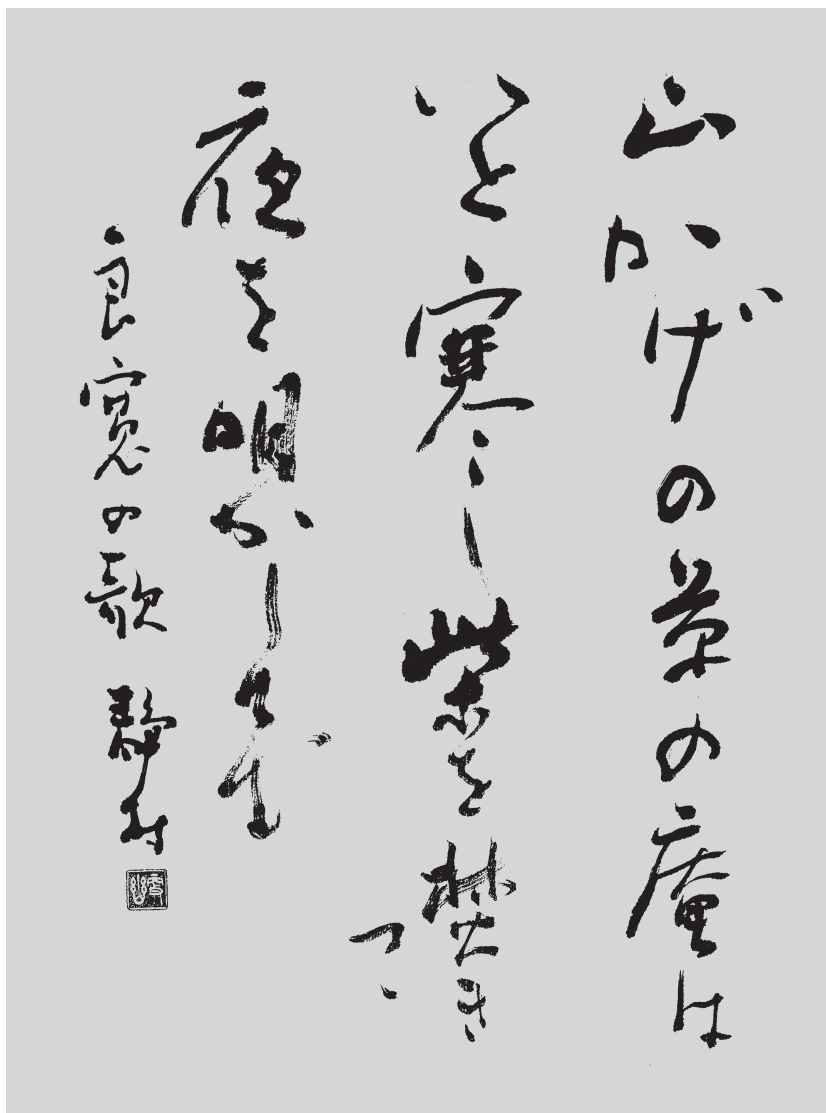 山かげの草の庵は
いと寒し柴を焚きつゝ
夜を明かしてむ
良寛の歌 静村